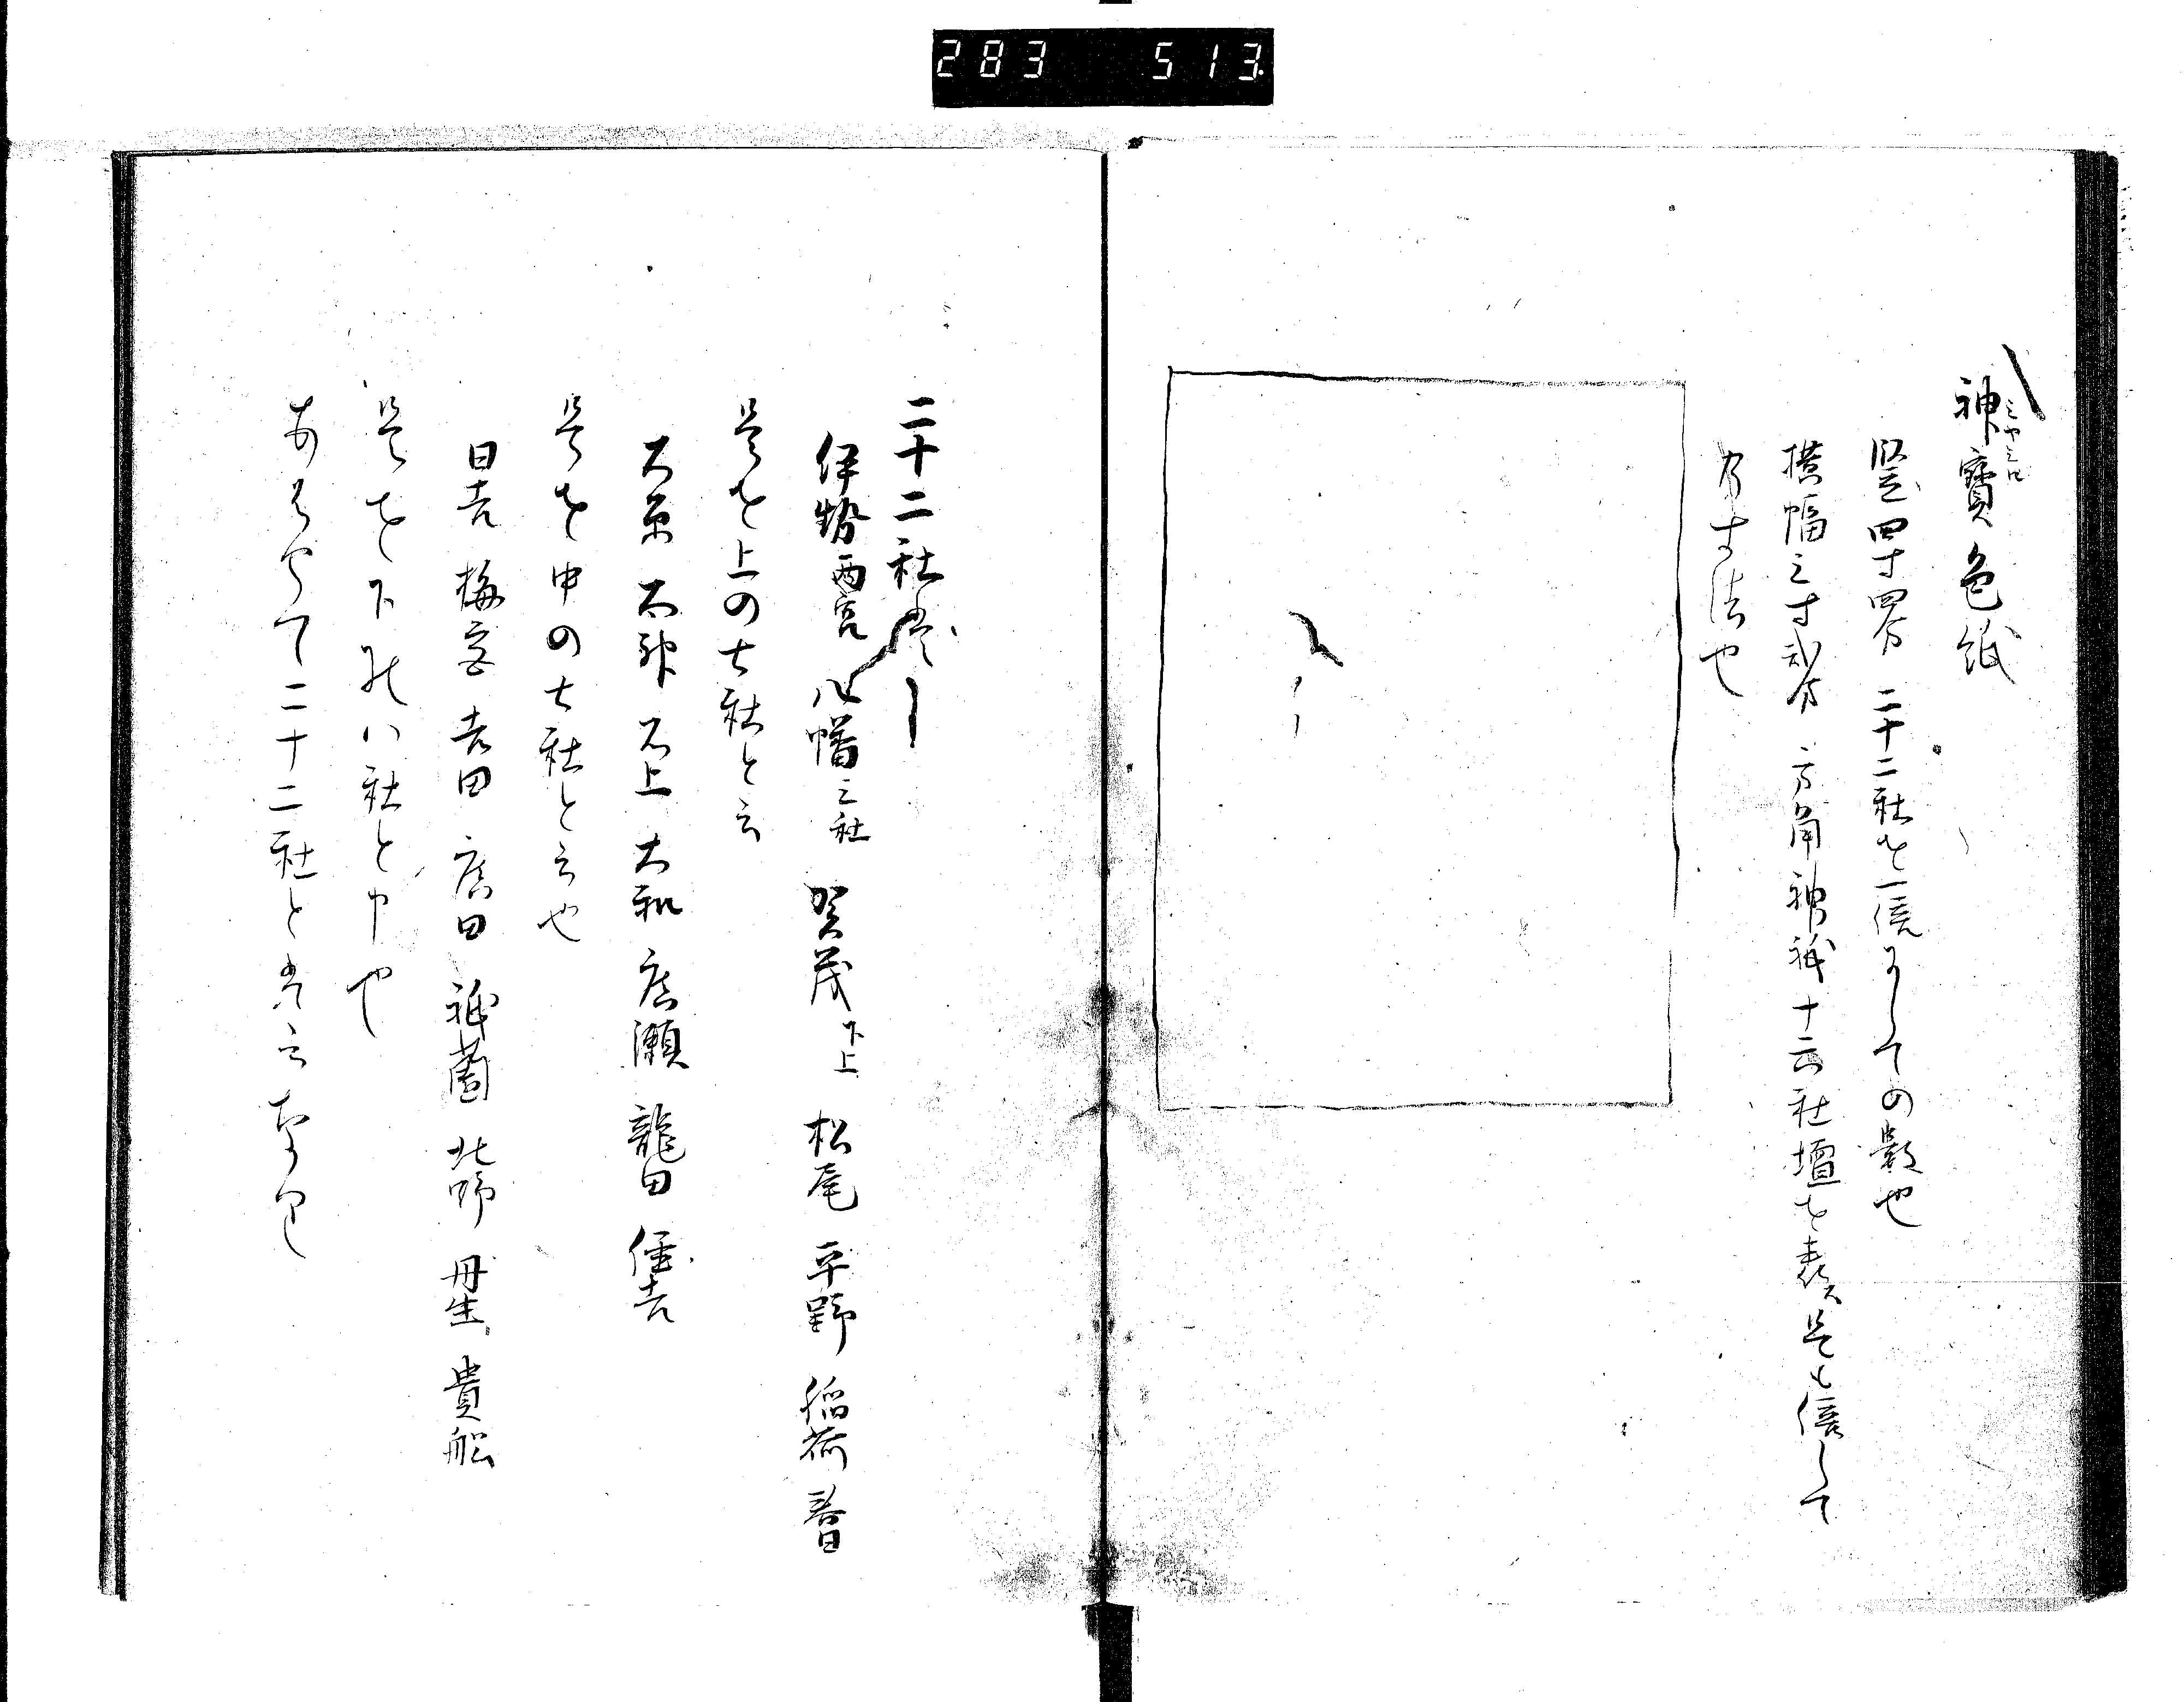 283 513
神寳色紙
竪四寸四分 二十二社を一倍にしての数也
横幅三寸弐分 方角神祇十六社壇を表ス是も倍して
乃寸法也
二十二社
伊勢 両宮 八幡 三社 賀茂 下上 松尾 平野 稲荷 春日
是を上の七社と云
大原 大神 石上 大和 広瀬 龍田 住吉
是を中の七社と云也
日吉 梅宮 吉田 広田 祇薗 北野 丹生 貴船
是を下の八社と申也
二十二社と